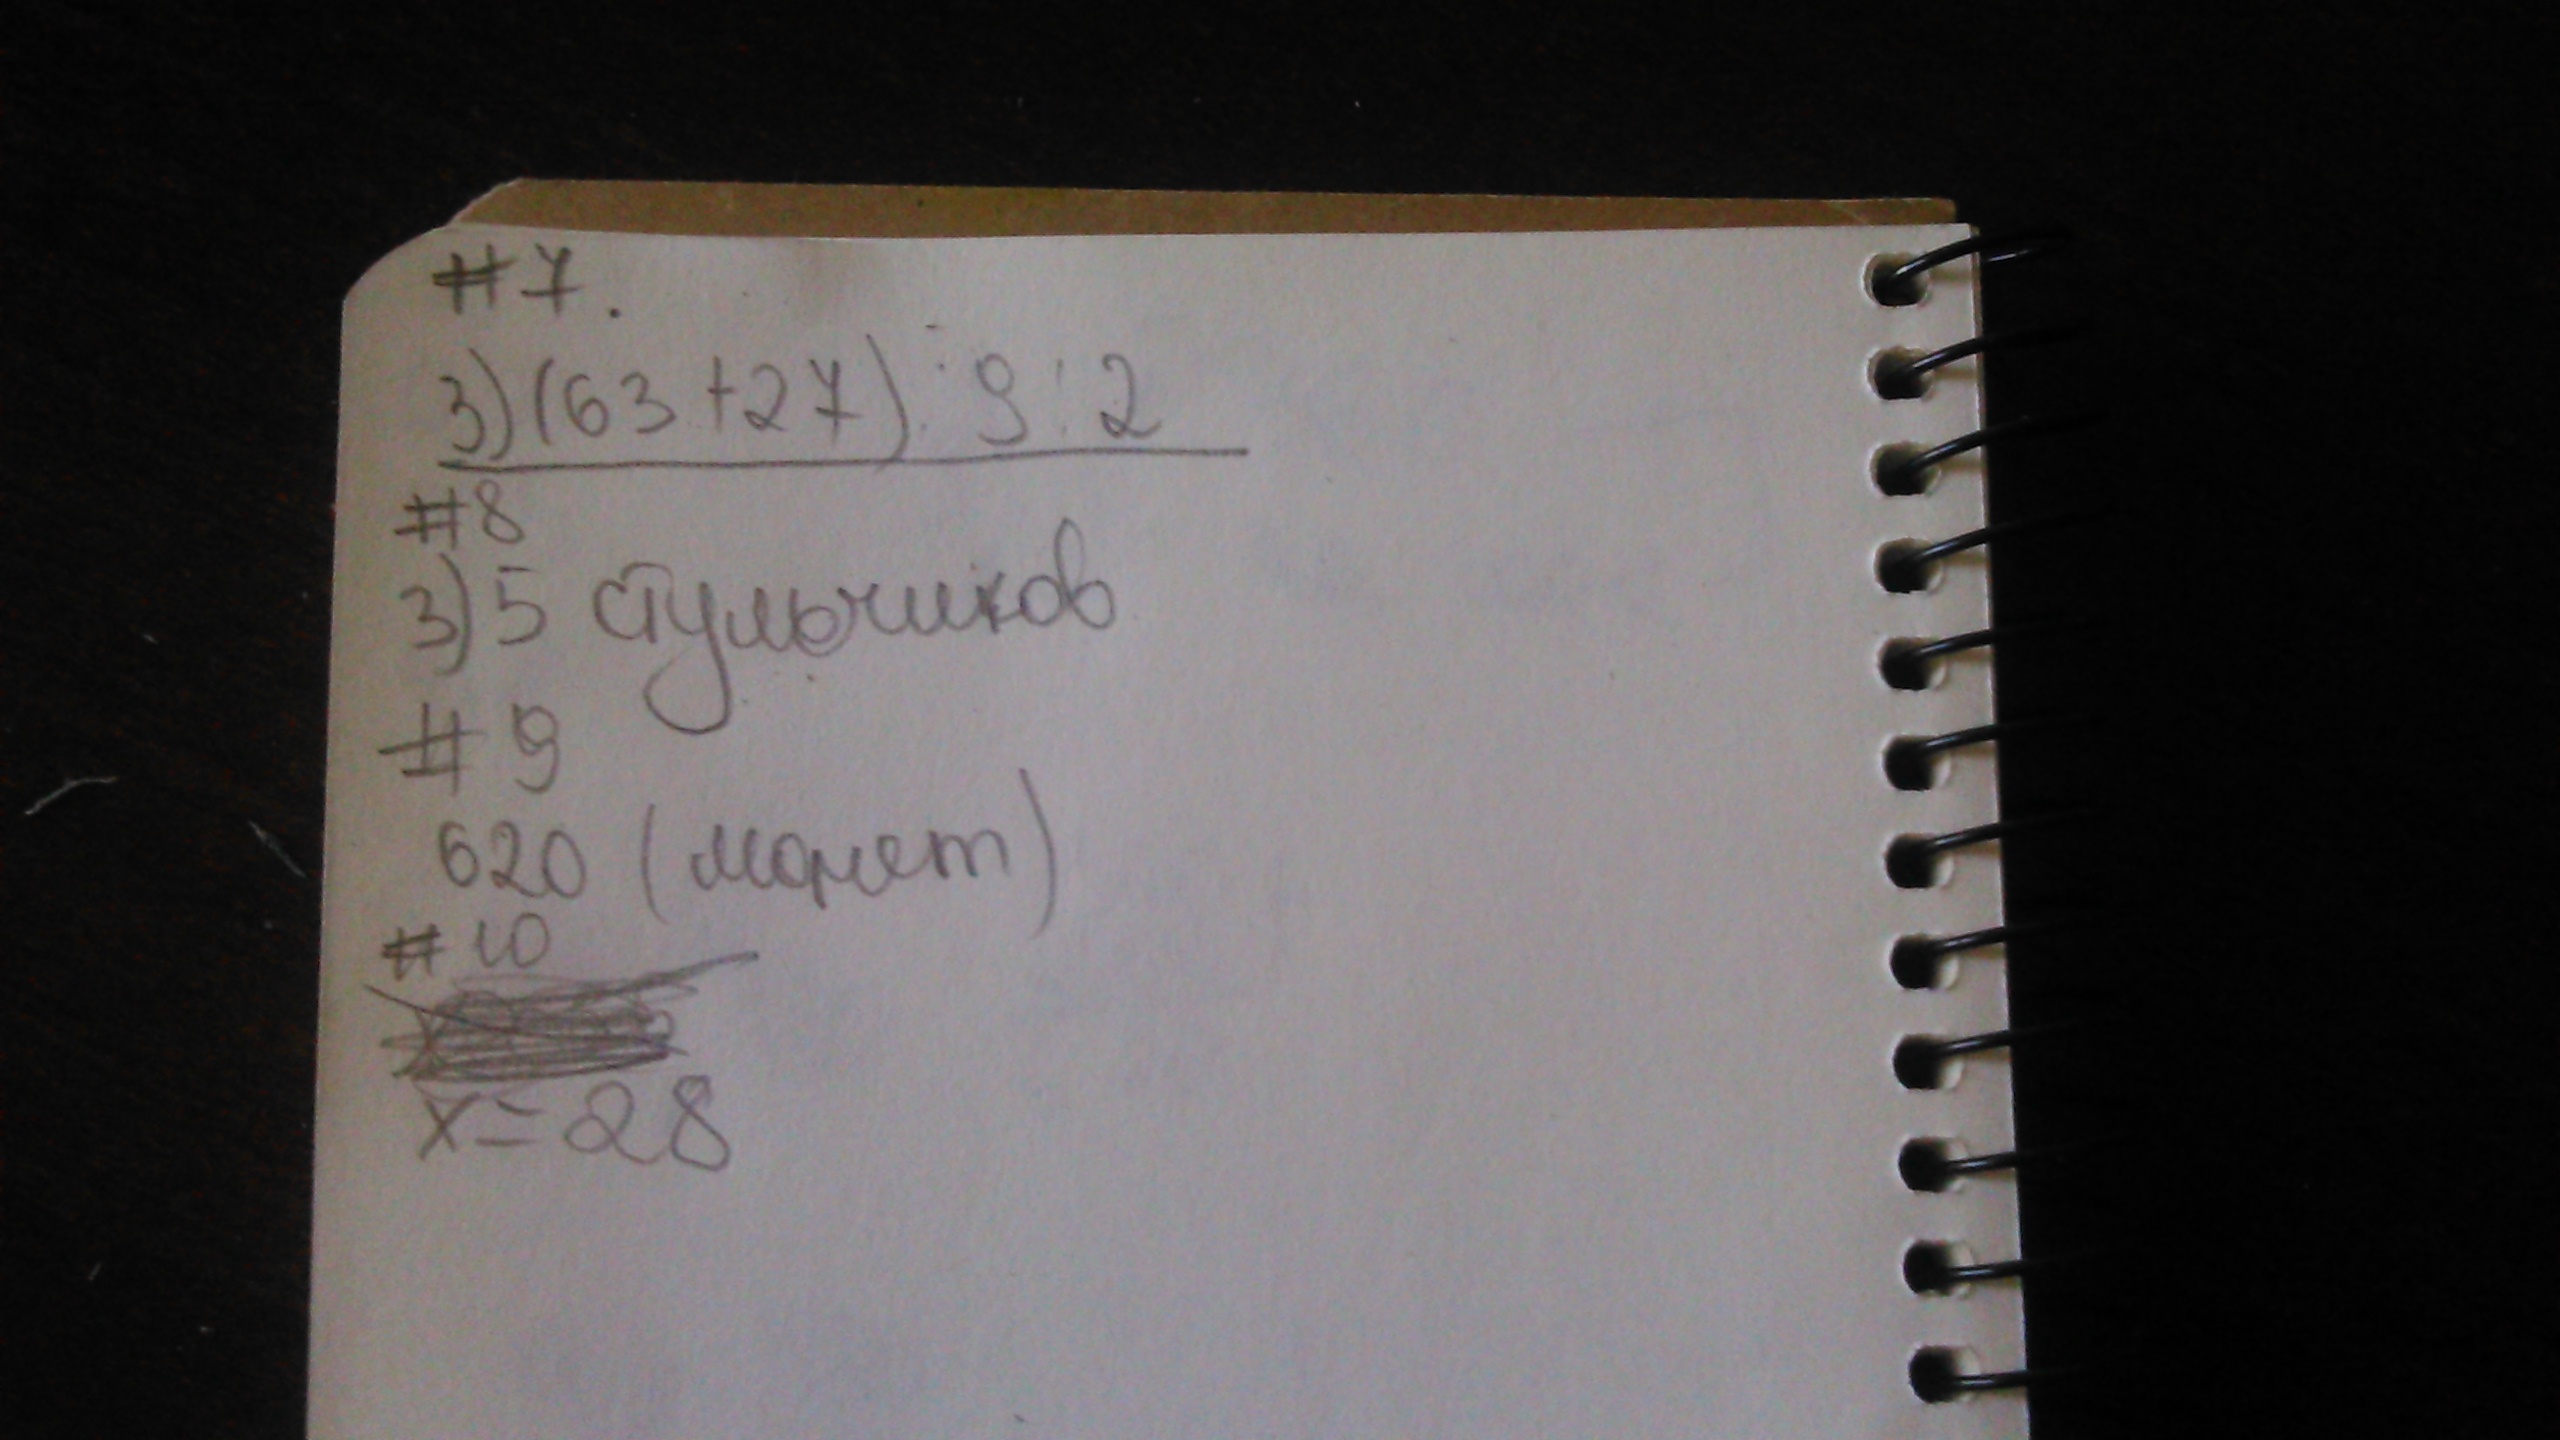 #7.
3) (63+27) : 9 : 2
#8
3) 5 стульчиков
#9
620 (монет)
#10
x = 28